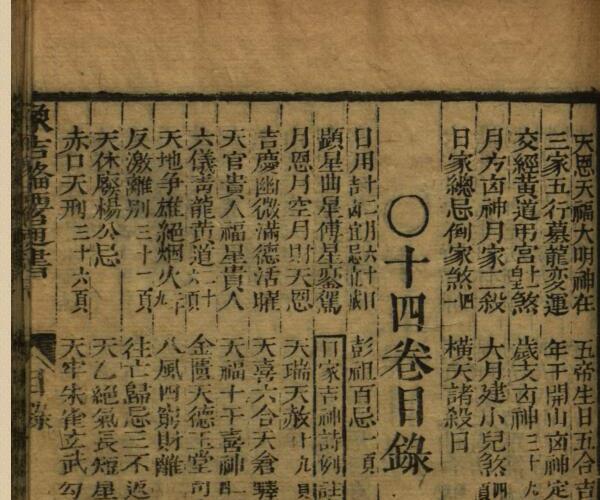 天恩天福大明神在　五帝生日五合吉
三家五行墓龍変運　年干開山凶神定
交經黄道弔宫　煞　歲支凶神三十九
月方凶神月家二殺　大月建小兒煞
日家總忌倒家煞四　橫天諸殺日
〇十四卷目錄
日用十二月六十日吉凶宜忌　彭祖百忌一頁
顯星曲星傅星鑾駕　日家吉神詩例註
月恩月空月財天恩　天瑞天赦十九頁
吉慶幽微滿德活曜　天喜六合天倉驛
天官貴人福星貴人　天福十干喜神
六儀青龍黄道二十頁　金匱天德玉堂司
天地争雄絕烟火　八風四窮財離
反激離別三十一頁　往亡歸忌三不返
天休廢楊公忌　天乙絕氣長短星
赤口天刑三十六頁　天牢朱雀玄武勾
象吉備要通書　目錄